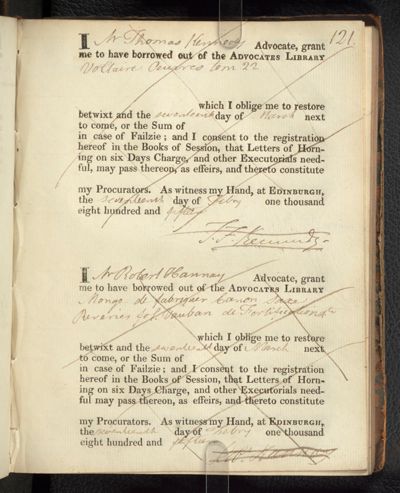 121.
I Mr Thomas Kennedy Advocate, grant
me to have borrowed out of the ADVOCATES LIBRARY
Voltaire Oeuvres tom 22
which I oblige me to restore
betwixt and the seventeenth day of March next
to come, or the Sum of
in case of Failzie; and I consent to the registration
hereof in the Books of Session, that Letters of Horn-
ing on six Days Charge, and other Executorials need-
ful, may pass thereon, as effeirs, and thereto constitute
my Procurators. As witness my Hand, at EDINBURGH,
the seventeenth day of Febry one thousand
eight hundred and fifteen
T. F. Kennedy
I Mr Robert Hannay Advocate, grant
me to have borrowed out of the ADVOCATES LIBRARY
Monge de fabriquer Canon Saxe
Reveries Vauban de Fortification
which I oblige me to restore
betwixt and the seventeenth day of March next
to come, or the Sum of
in case of Failzie; and I consent to the registration
hereof in the Books of Session, that Letters of Horn-
ing on six Days Charge, and other Executorials need-
ful may pass thereon, as effeirs, and thereto constitute
my Procurators. As witness my Hand, at EDINBURGH,
the seventeenth day of Febry one thousand
eight hundred and fifteen